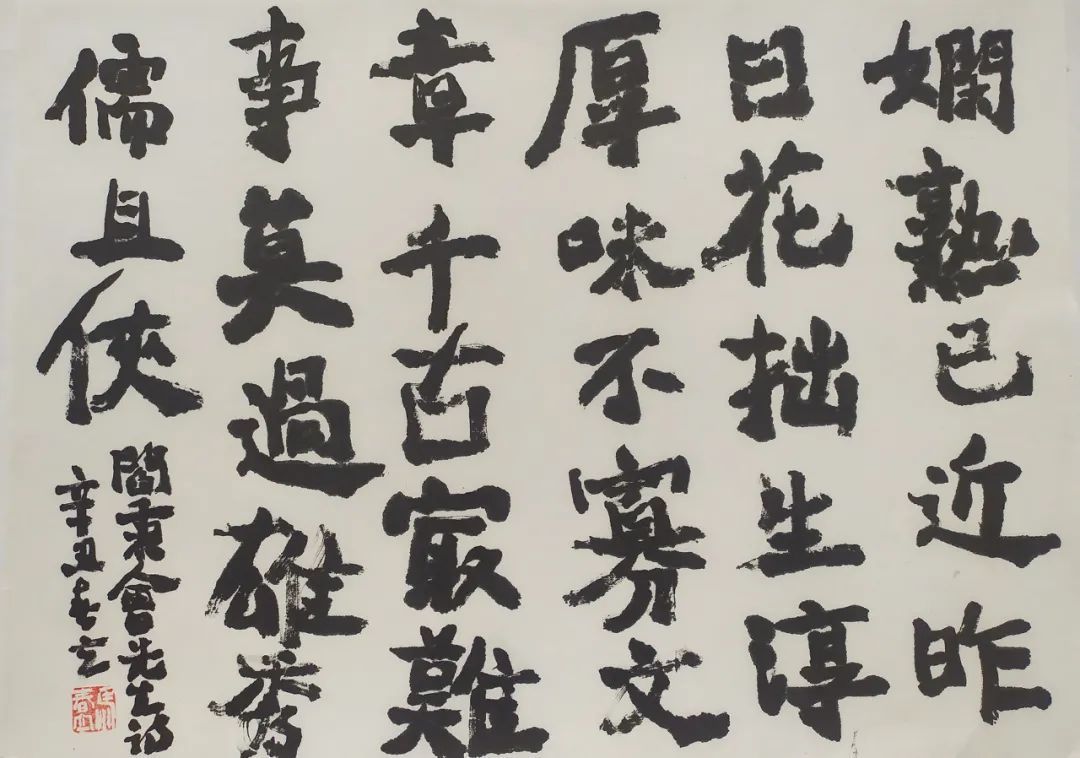 嫻熟已近昨
日花拙生淳
厚味不寡文
章千古㝡難
事莫過雄秀
儒且俠
閻秉會先生詩
辛丑春